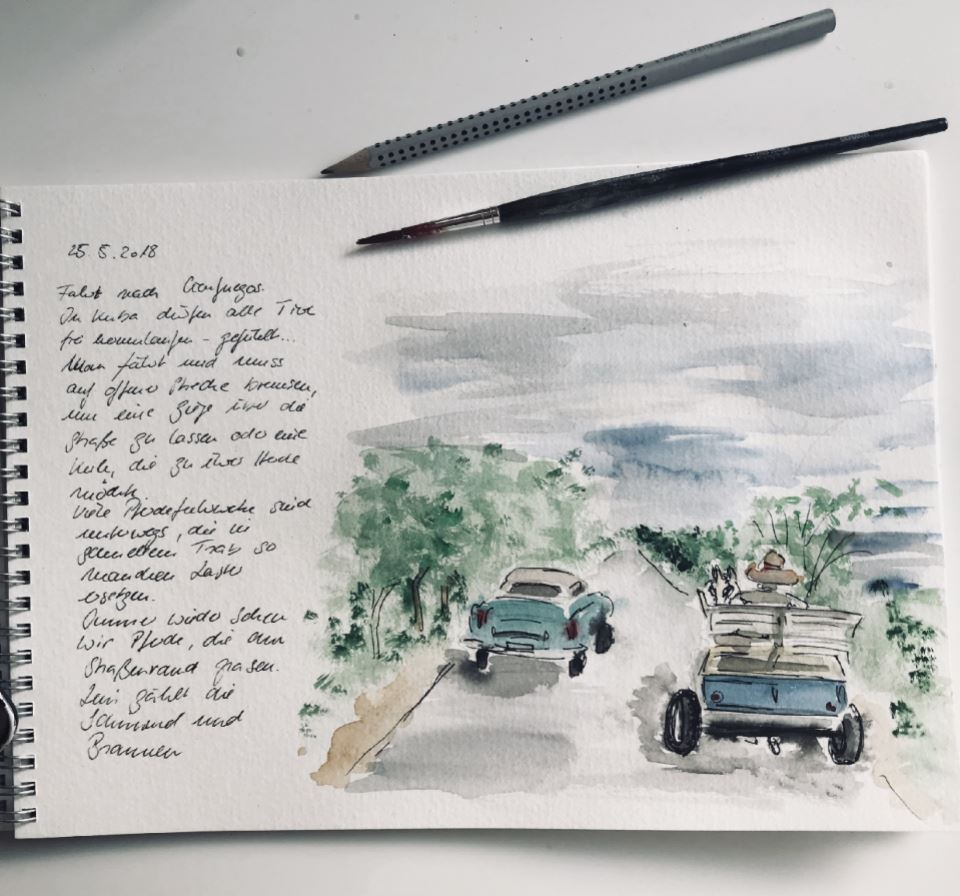 25.5.2018
Fahrt nach Cienfuegos.
In Kuba dürfen alle Tiere
frei herumlaufen - gefühlt...
Man fährt und muss
auf offener Strecke bremsen,
um eine Ziege über die
Straße zu lassen oder eine
Kuh, die zu ihrer Herde
möchte.
Viele Pferdefuhrwerke sind
unterwegs, die in
schnellem Trab so
manchen Laster
ersetzen.
Immer wieder sehen
wir Pferde, die am
Straßenrand grasen.
zählt die
und
Braunen